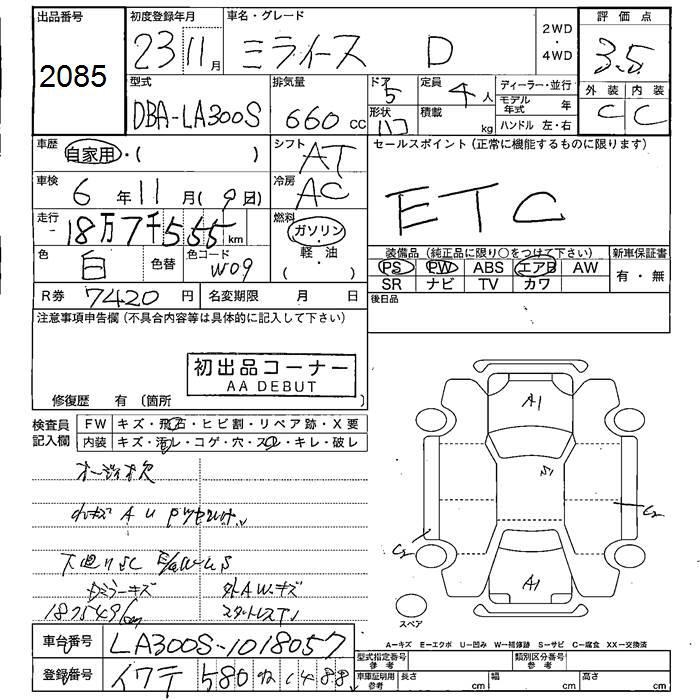 出品番号
2085
初度登録年月
23 11月
車名・グレード
ミライース D
2WD・4WD
評価点
3.5
外装 内装
C C
型式
DBA-LA300S
排気量
660cc
ドア
5
形状
ハコ
定員
4人
積載 kg
ディーラー・並行
モデル年式 年
ハンドル 左・右
車歴
自家用・( )
シフト
AT
セールスポイント(正常に機能するものに限ります)
ETC
車検
6年11月(9日)
冷房
AC
走行
18万7千555km
燃料
ガソリン
軽油
( )
色
白
色替
色コード
W09
装備品(純正品に限り○をつけて下さい)
PS PW ABS エアB AW
SR ナビ TV カワ
新車保証書
有・無
R券 7420円
名変期限 月 日
後日品
注意事項申告欄(不具合内容等は具体的に記入して下さい)
初出品コーナー
AA DEBUT
修復歴 有(箇所 )
検査員記入欄
FW キズ・飛石・ヒビ割・リペア跡・X要
内装 キズ・汚レ・コゲ・穴・スレ・キレ・破レ
オーディオ欠
小キズ A U
下廻りSC
ドアミラーキズ
外AWキズ
187549km
スタットレスタイ
A1
S1
C2
C2
A1
スペア
A=キズ E=エクボ U=凹み W=補修跡 S=サビ C=腐食 XX=交換済
車台番号
LA300S-1018057
登録番号
イワテ 580 ね 1488
型式指定番号 参考
類別区分番号 参考
車庫証明用 参考
長さ cm
幅 cm
高さ cm